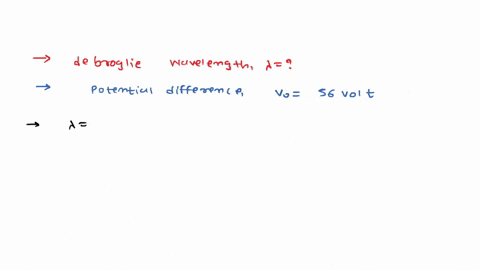 → debroglie wavelength, λ = ?
→ Potential difference, V₀ = 56 volt
→ λ =